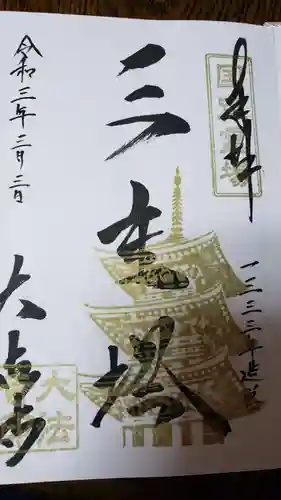 奉拝
国宝
一三三三年造
三重塔
大法寺
大法
令和三年三月三日